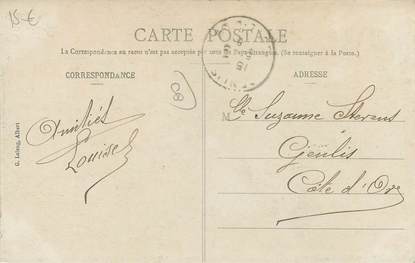 15 €
CARTE POSTALE
La Correspondance au recto n'est pas acceptée par tous les Pays Étrangers. (Se renseigner à la Poste.)
CORRESPONDANCE
ADRESSE
80
Amitiés
Louise
G. Lelong, Albert
Mlle Suzanne Stevens
à
Genlis
Côte d'Or